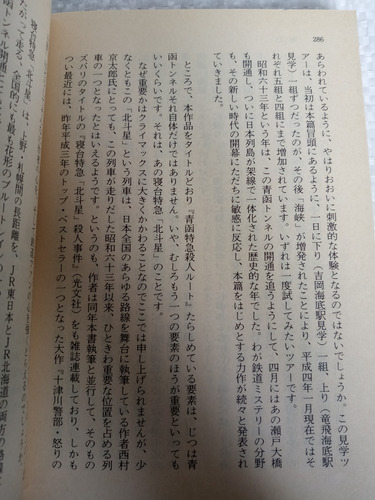 286
あらわれているように、やはりおおいに刺激的な体験となるのではないでしょうか。この見学ツ
アーは、当初は本篇冒頭にあるように、一日に下り（吉岡海底駅見学）一組、上り（竜飛海底駅
見学）一組ずつだったのが、その後「海峡」が増発されたことにより、平成四年一月現在ではそ
れぞれ五組と四組にまで増加されています。いずれは一度試してみたいツアーです。
昭和六十三年という年は、この青函トンネルの開通を追うようにして、四月にはあの瀬戸大橋
も開通し、ついに日本列島が架線で一体化された歴史的な年でした。わが鉄道ミステリーの分野
も、その新しい時代の開幕にただちに敏感に反応し、本篇をはじめとする力作が続々と発表され
ていきました。
ところで、本作品をタイトルどおり『青函特急殺人ルート』たらしめている要素は、じつは青
函トンネルそれ自体だけではありません。いや、むしろもう一つの要素のほうが重要といっても
いいくらいです。それは、あの寝台特急「北斗星」のことです。
なぜ重要かはクライマックスに大きくかかわることなのでここでは申し上げられませんが、少
なくともこの「北斗星」という列車は、日本全国のあらゆる路線を舞台に執筆している作者西村
京太郎氏にとっても、この列車が走りだした昭和六十三年以来、ひときわ重要な位置を占める列
車の一つとなったとはいえるようです。というのも、作者は同年本書執筆と並行して、そのもの
ズバリのタイトルの『寝台特急「北斗星」殺人事件』（光文社）をも雑誌連載しており、しかも
つい最近には、昨年平成三年のトップ・ベストセラーの一つとなった大作『十津川警部・怒りの
寝台特急「北斗星」は、上野‐札幌間の長距離を、JR東日本とJR北海道の両方の路線
たがって走る、全国的にも最も花形のブルートレイン